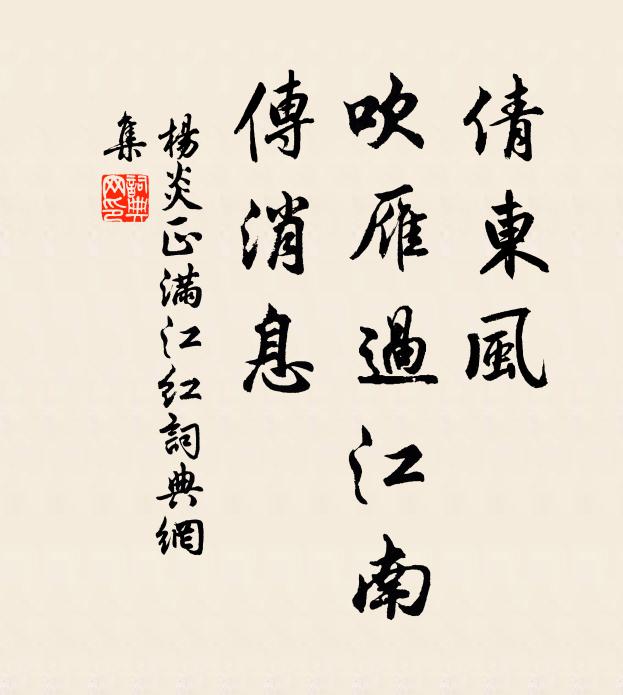 倩東風
吹雁過江南
傳消息
楊炎正滿江紅詞典網
集
詞典
网印